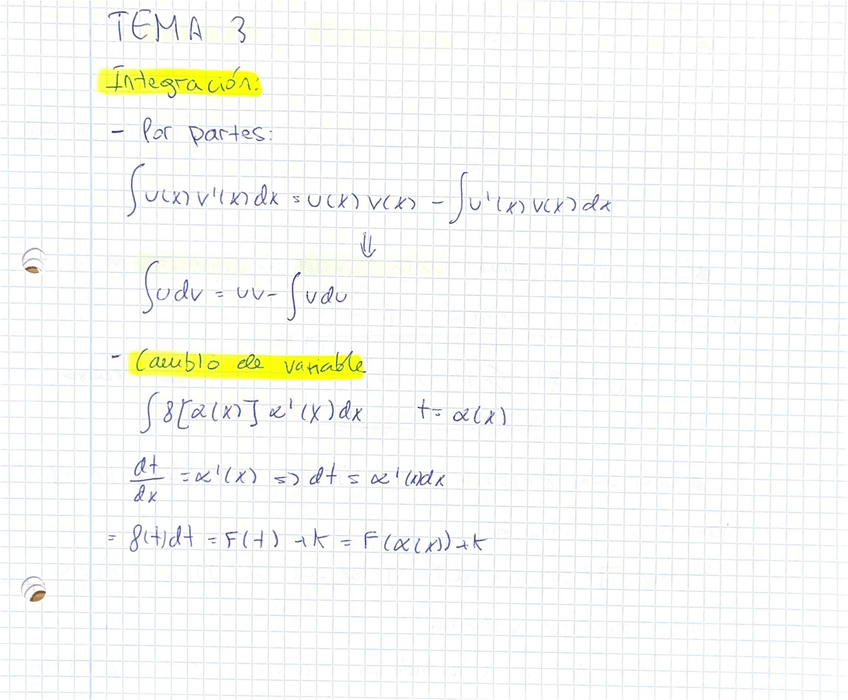 TEMA 3
Integración:
- Por partes:
∫u(x)v'(x)dx = u(x)v(x) - ∫u'(x)v(x)dx
⇓
∫udv = uv - ∫vdu
- Cambio de variable
∫f[α(x)]α'(x)dx t = α(x)
dt/dx = α'(x) => dt = α'(x)dx
= f(t)dt = F(t) + k = F(α(x)) + k